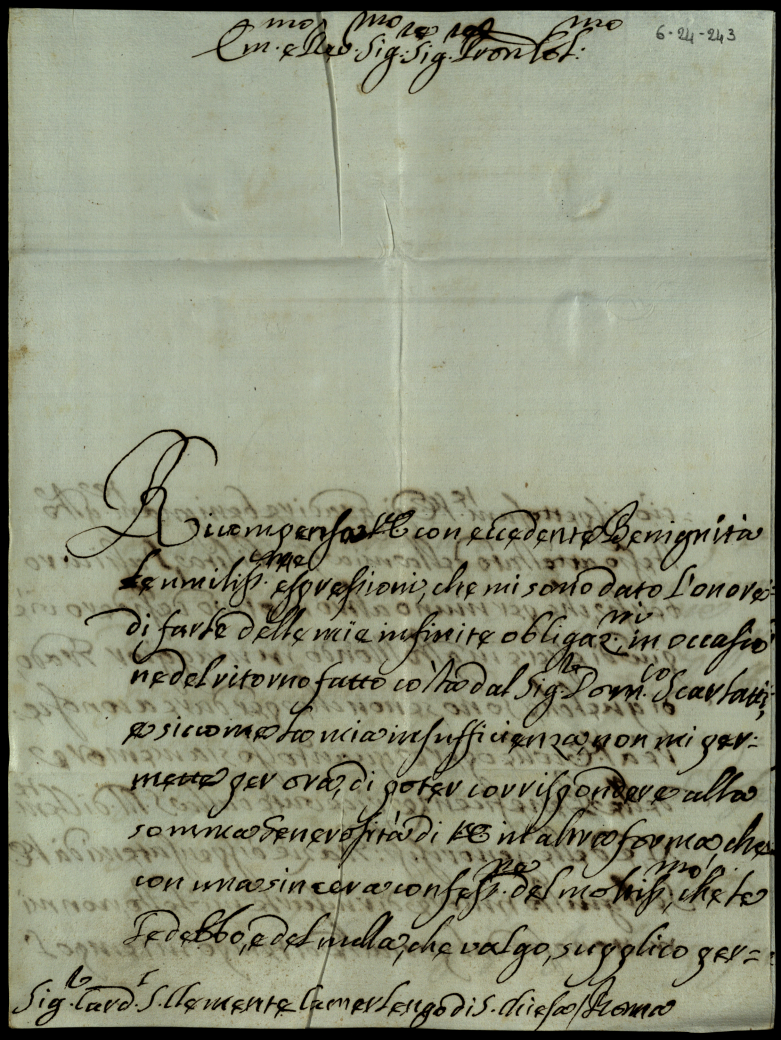 6-24-243
Em.mo e Rev.mo Sig.re Sig.re Pron Col.mo
Ricompensa VE con eccedente Benignità
le umiliss.me espressioni, che mi sono dato l'onore
di farle delle mie infinite obligaz.ni, in occasio
ne del ritorno fatto costà dal Sig.re Dom.co Scarlatti,
e siccome la mia insufficienza, non mi per=
mette per ora, di poter corrispondere alla
somma Generosità di VE in altra forma, che
con una sincera confess.ne del moltiss.mo, che le
Le debbo, e del nulla, che valgo, supplico per=
Sig.r Card.l S. Clemente Camerlengo di S. Chiesa / Roma